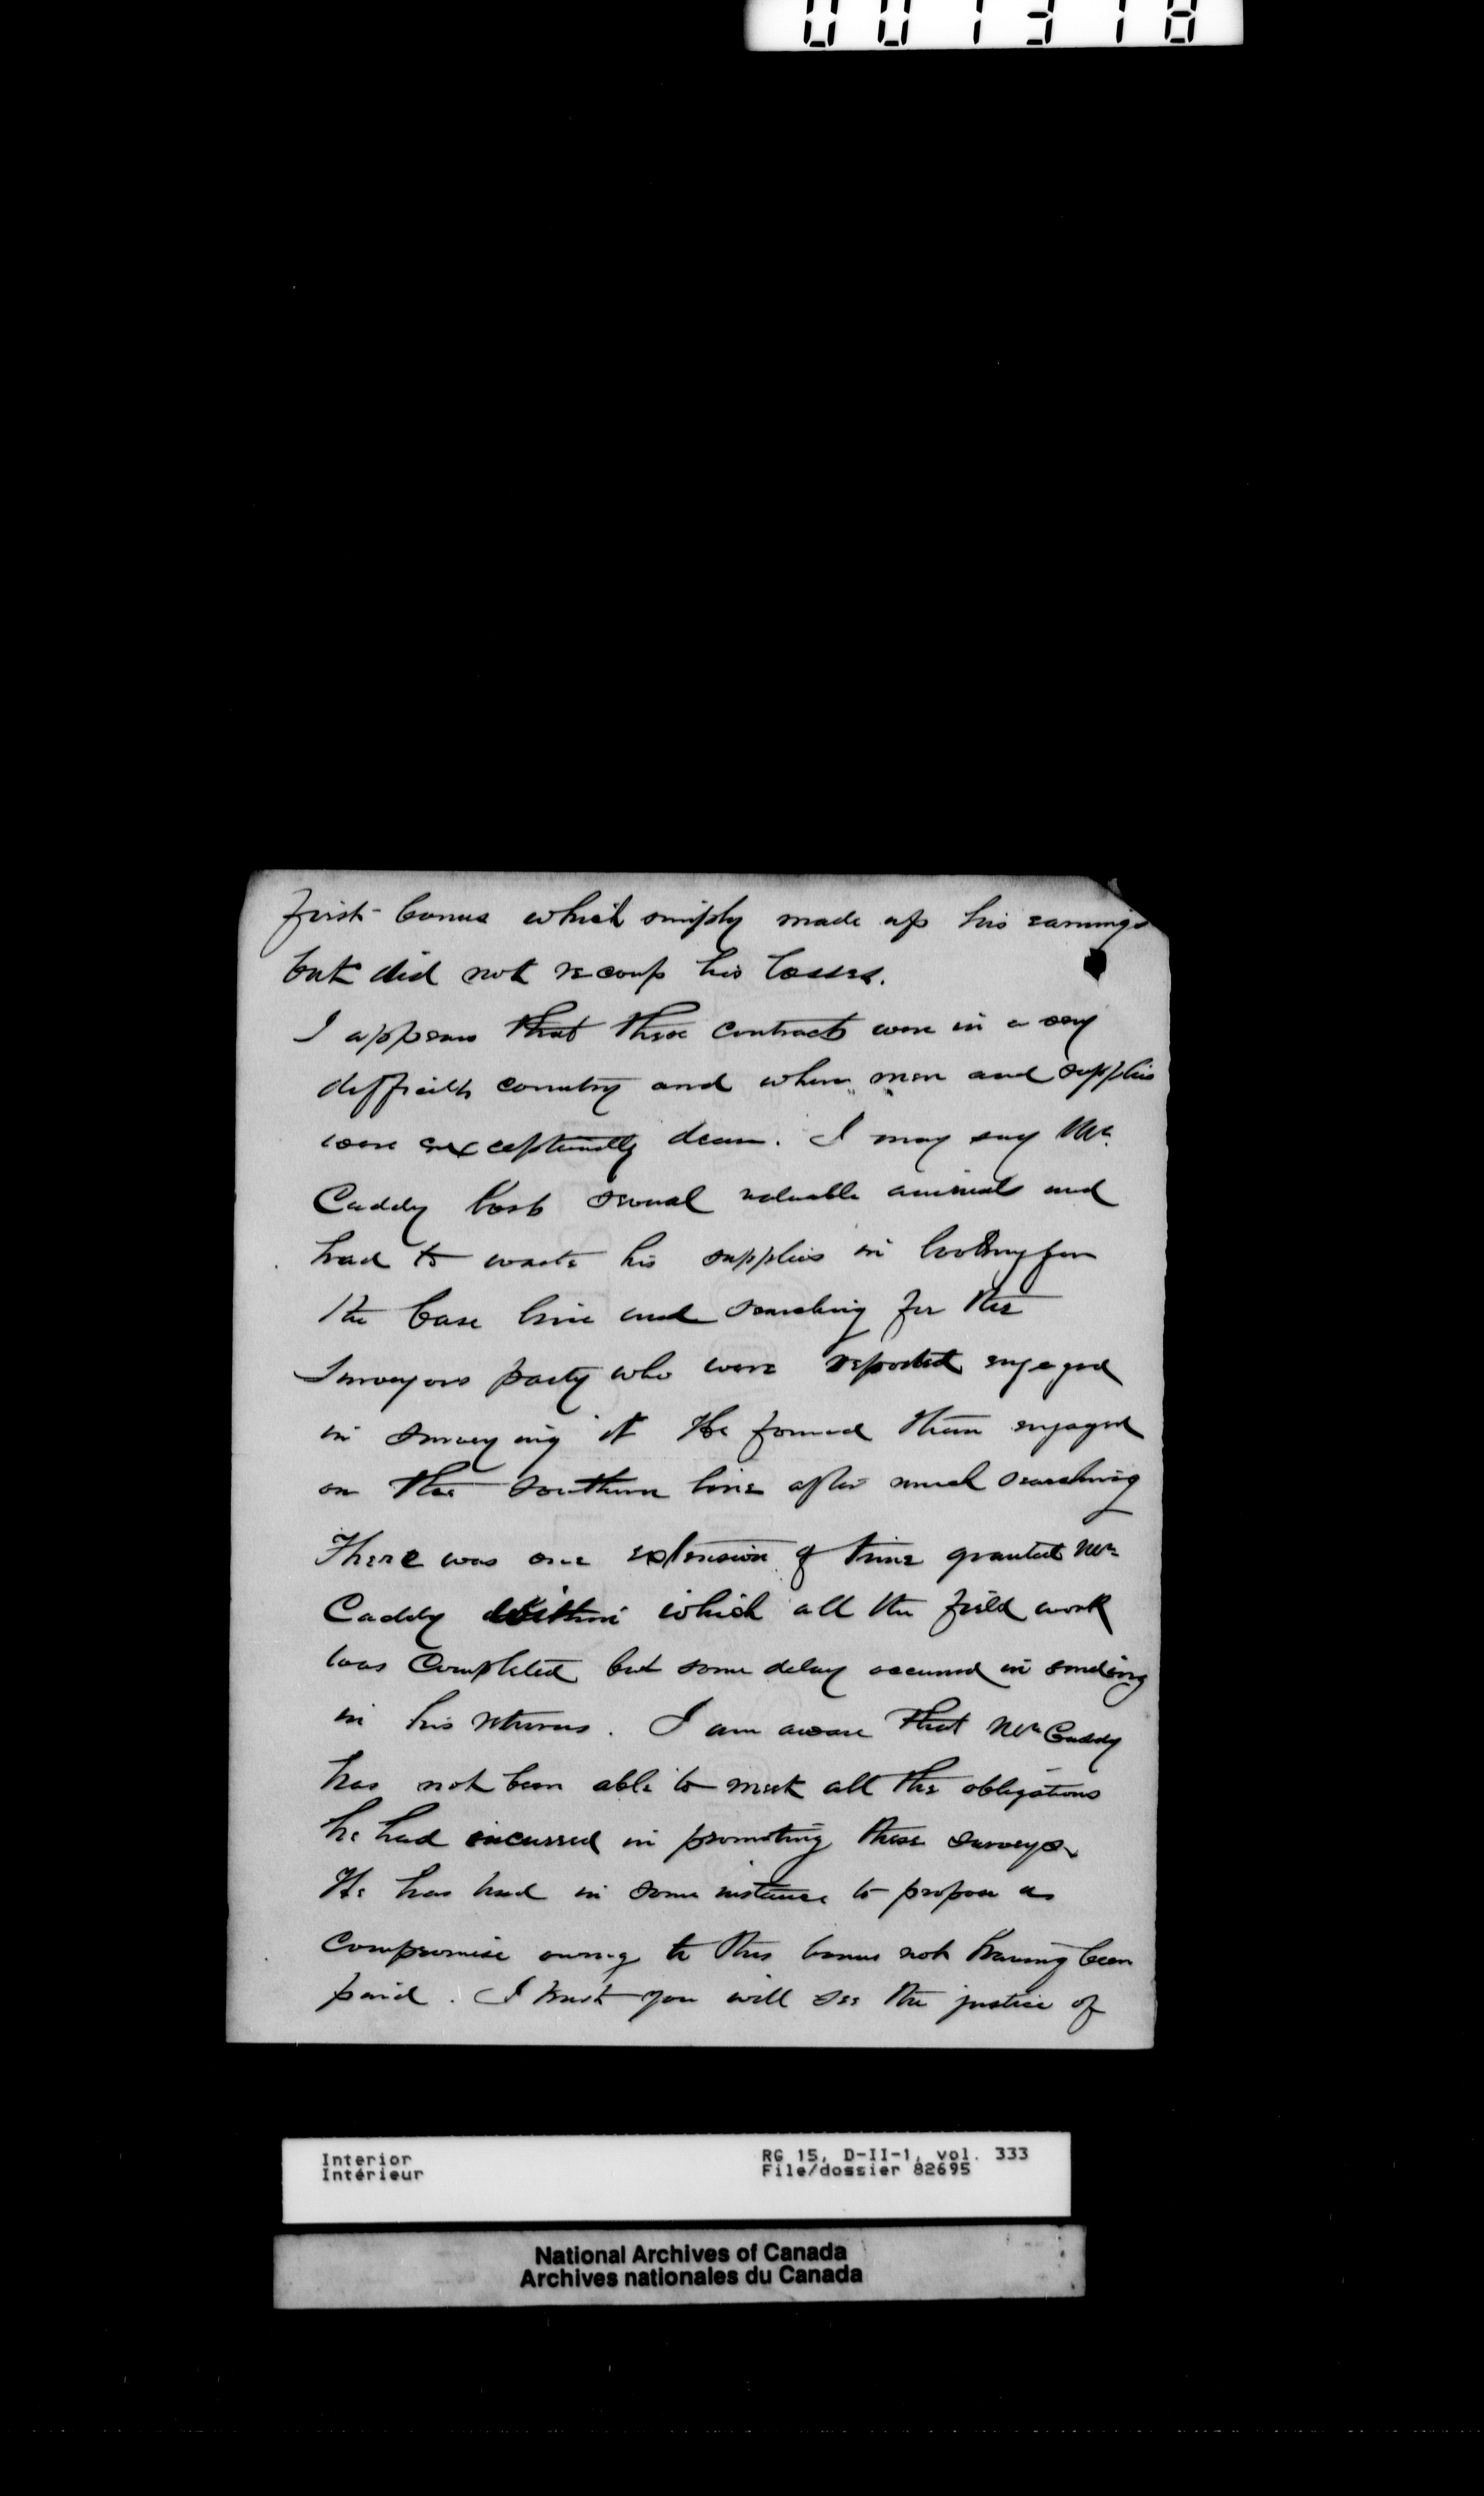 001318
first bonus which simply made up his earnings
but did not recoup his losses.
I appears that these contracts were in a very
difficult country and where men and supplies
were exceptionally dear. I may say Mr.
Caddy lost several valuable animals and
had to waste his supplies in looking for
the base line and searching for the
Surveyors party who were reported engaged
in surveying it He found them engaged
on the southern line after much searching
There was one extension of time granted Mr
Caddy within which all the field work
was Completed but some delay occurred in sending
in his returns. I am aware that Mr Caddy
has not been able to meet all the obligations
he had incurred in promoting these surveys
He has had in some instance to propose a
Compromise owing to this bonus not having been
paid. I trust you will see the justice of
Interior
Intérieur
RG 15, D-II-1, vol. 333
File/dossier 82695
National Archives of Canada
Archives nationales du Canada